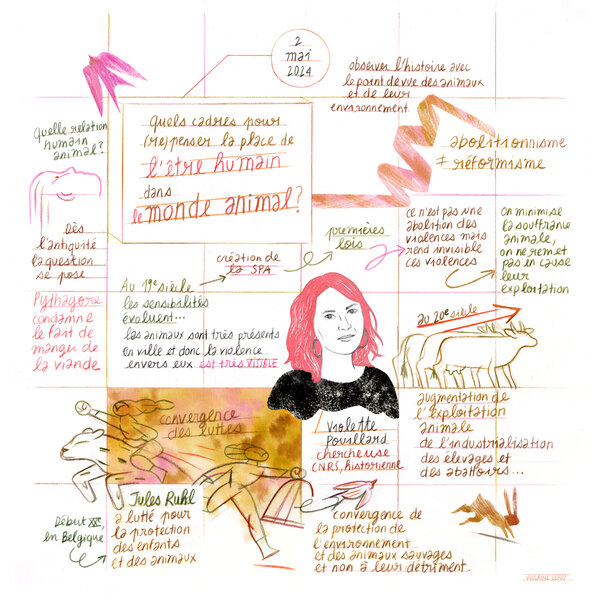 2
mai
2024
quels cadres pour
(re)penser la place de
l'être humain
dans
le monde animal?
observer l'histoire avec
le point de vue des animaux
et de leur
environnement
abolitionnisme
≠ réformisme
quelle relation
humain
animal?
Dès
l'antiquité
la question
se pose
Pythagore
condamne
le fait de
manger de
la viande
Au 19e siècle
les sensibilités
évoluent...
les animaux sont très présents
en ville et donc la violence
envers eux est très VISIBLE
création de
la SPA
premières
lois
ce n'est pas une
abolition des
violences mais
rend invisible
ces violences
on minimise
la souffrance
animale,
on ne remet
pas en cause
leur
exploitation
au 20e siècle
augmentation de
l'exploitation
animale
de l'industrialisation
des élevages et
des abattoirs...
Violette
Pouillard
chercheuse
CNRS, historienne
convergence
des luttes
Début XXe,
en Belgique
Jules Ruhl
a lutté pour
la protection
des enfants
et des animaux
convergence de
la protection de
l'environnement
et des animaux sauvages
et non à leur détriment.